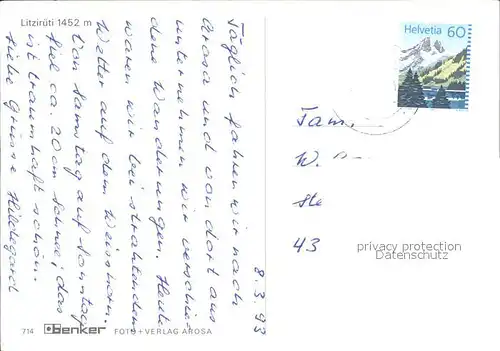 Litzirüti 1452 m
8.3.93
Täglich fahren wir nach
Arosa und von dort aus
unternehmen wir verschie-
dene Wanderungen. Heute
waren wir bei strahlendem
Wetter auf dem Weisshorn.
Von Samstag auf Sonntag
fiel ca. 20 cm Schnee, das
ist traumhaft schön.
Liebe Grüsse Hildegard
714 Benker FOTO + VERLAG AROSA
Helvetia 60
Fam.
W.
Ste
43
privacy protection
Datenschutz